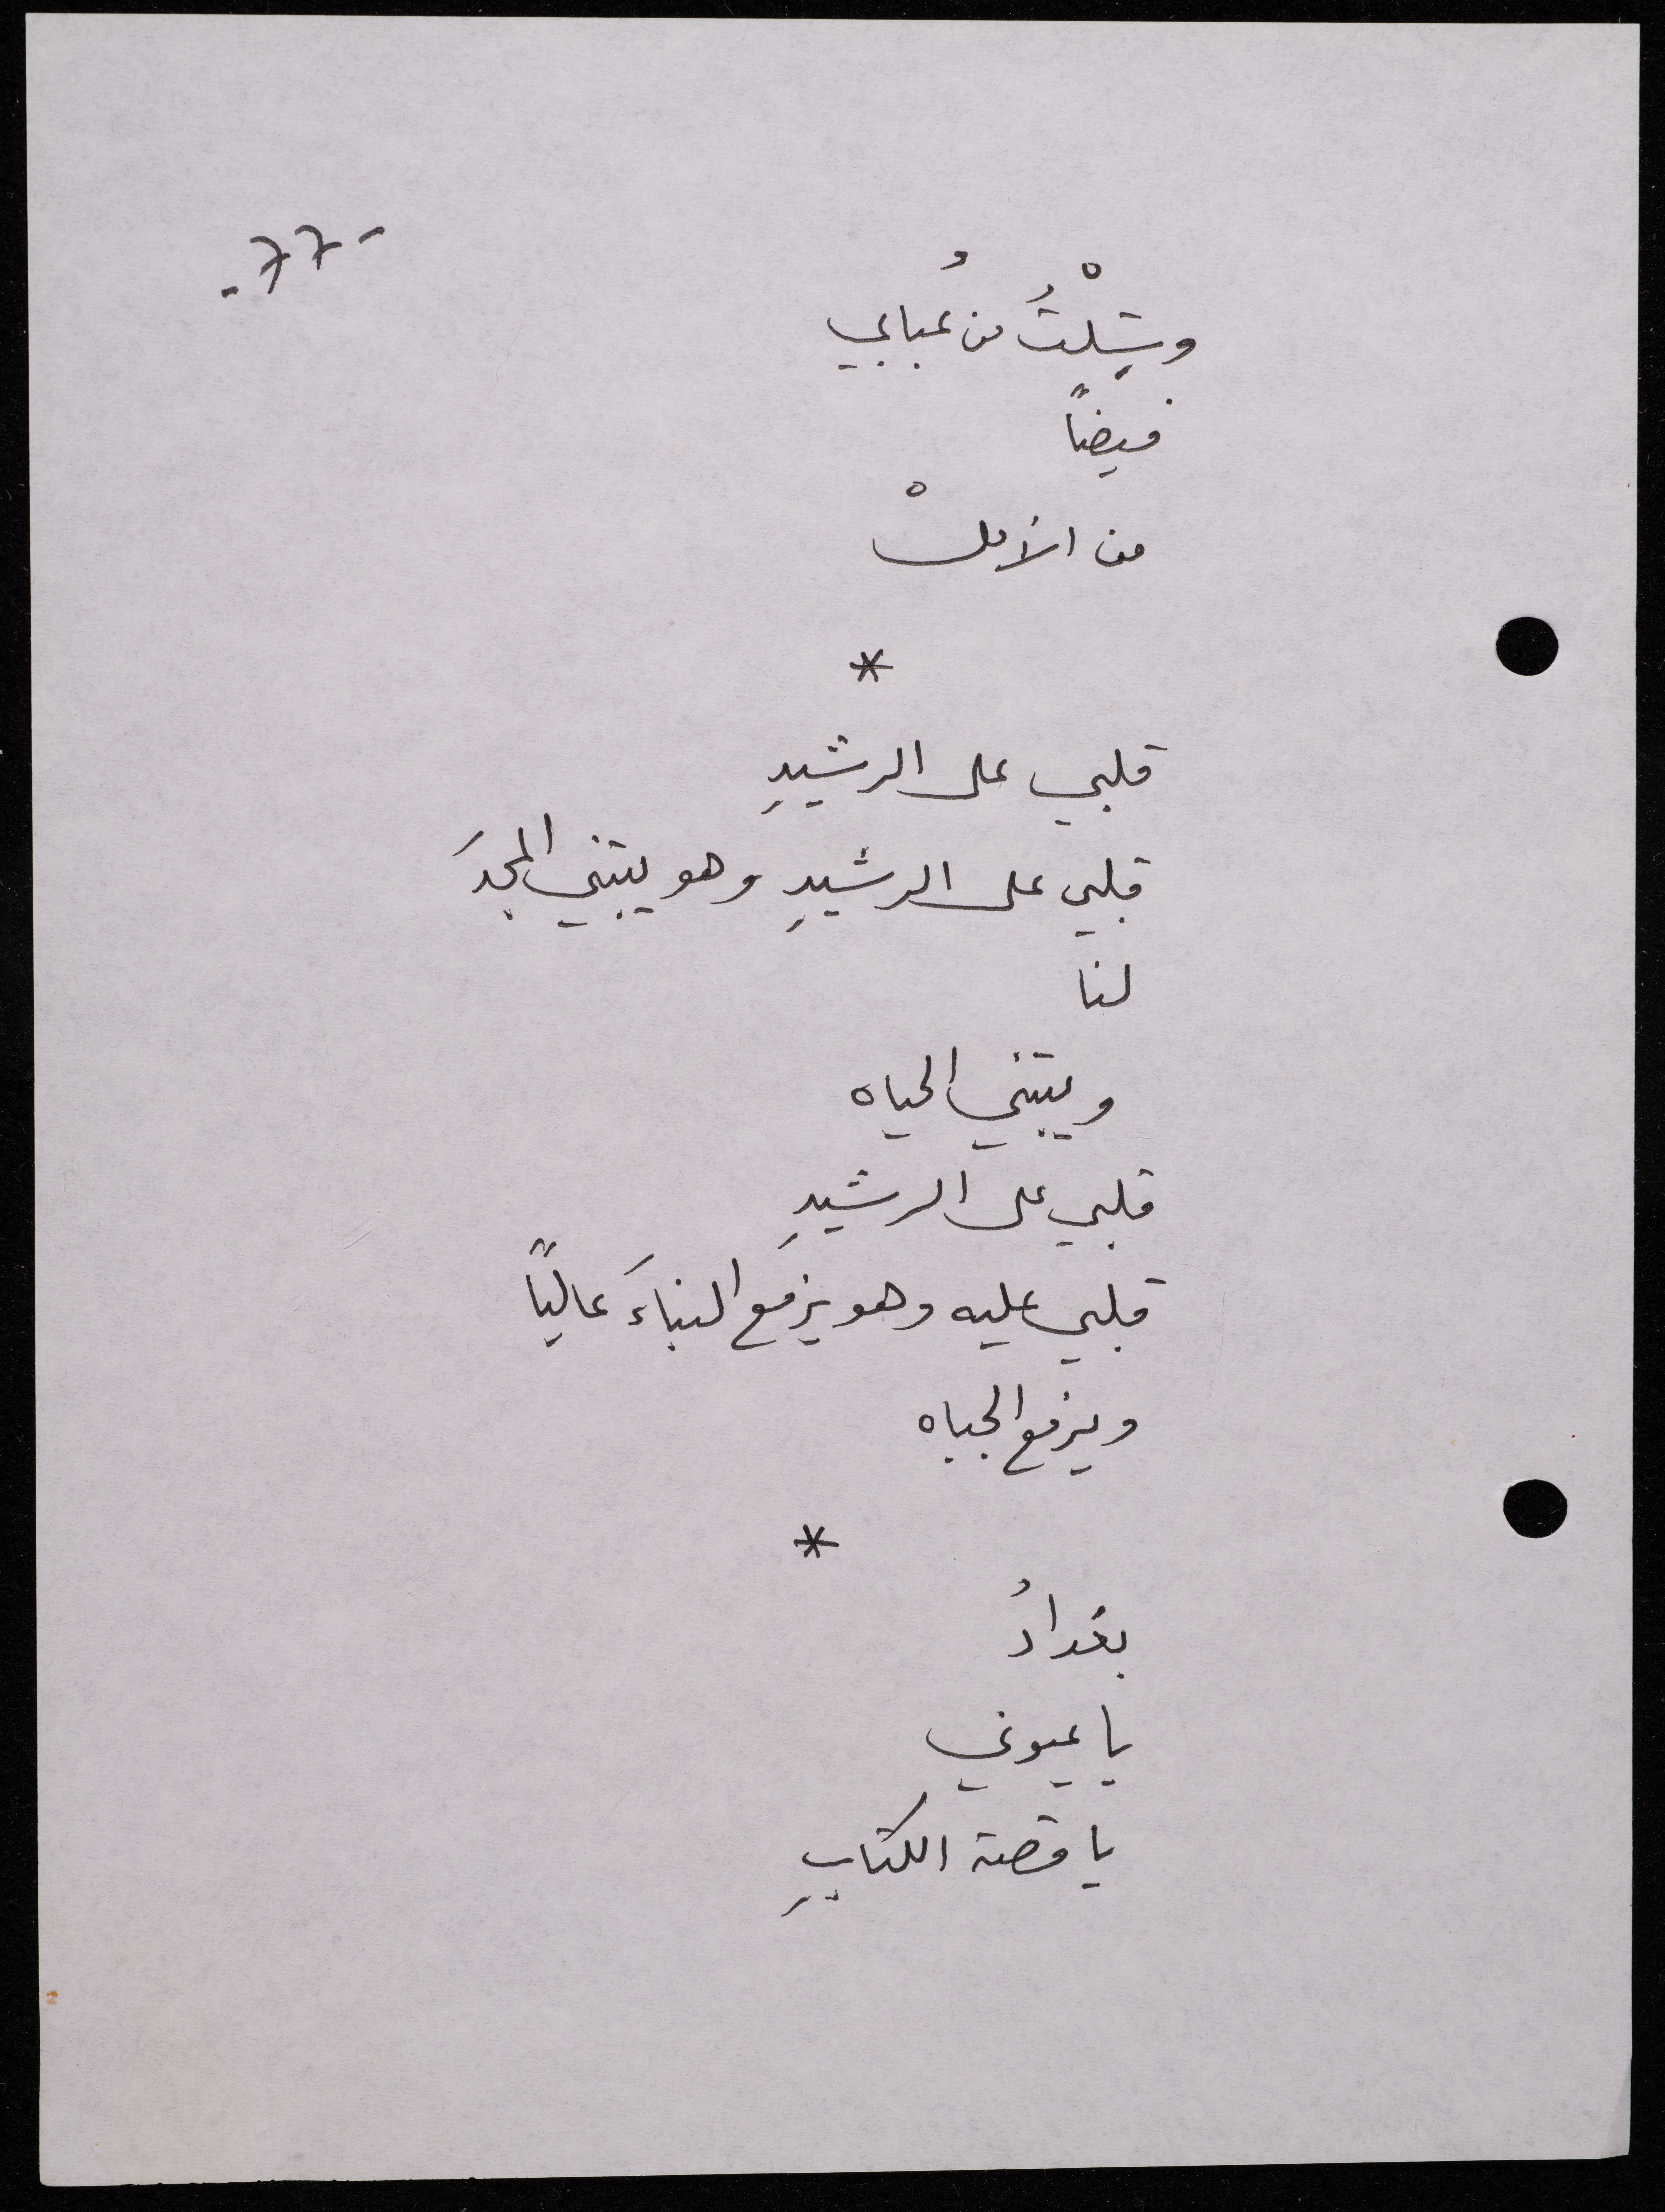 -77-
وشِلْتُ من عُبابي
فيضاً
من الأملْ
*
قلبي على الرشيدِ
قلبي على الرشيدِ وهو يبتني المجدَ
لنا
ويبتني الحياه
قلبي على الرشيدِ
قلبي عليه وهو يرفع البناءَ عالياً
ويرفع الجباه
*
بغدادُ
يا عيوني
يا قصة الكتابِ